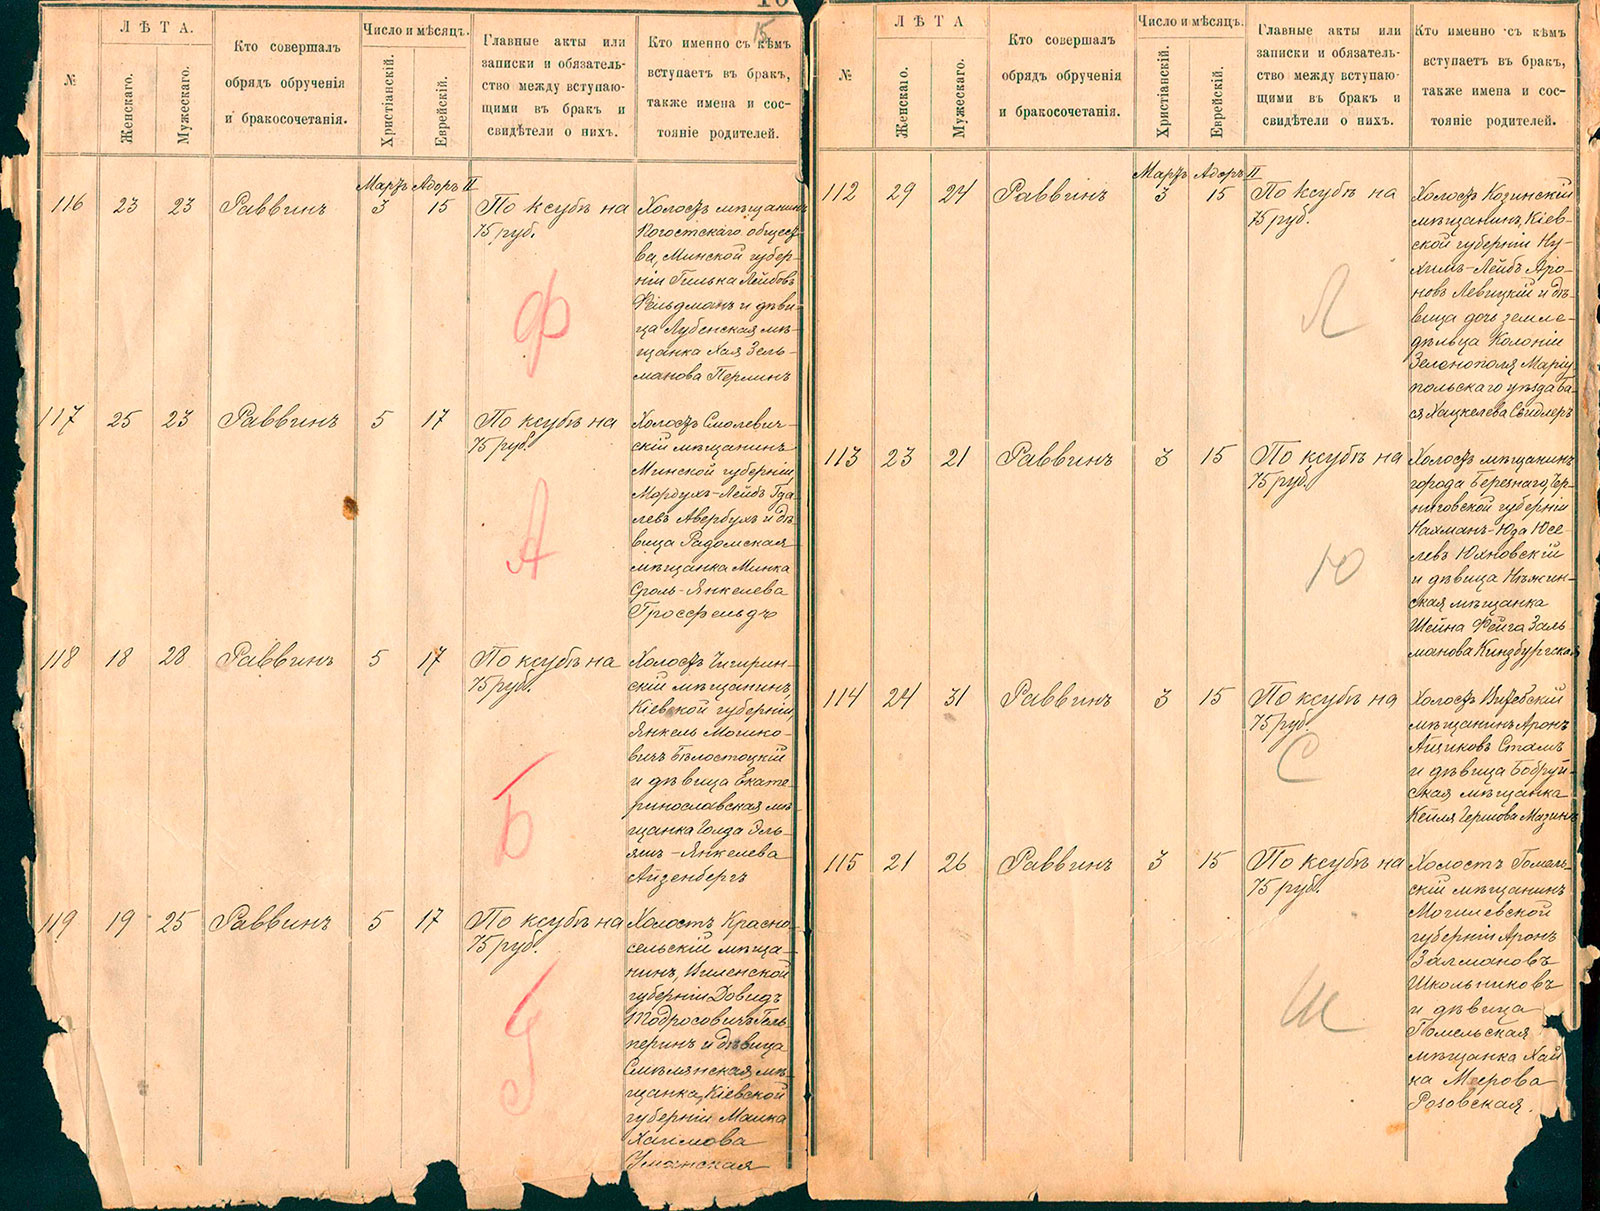 15
№
ЛѢТА.
Женскаго.
Мужескаго.
Кто совершалъ
обрядъ обрученія
и бракосочетанія.
Число и мѣсяцъ.
Христіанскій.
Еврейскій.
Главные акты или
записки и обязатель-
ство между вступаю-
щими въ бракъ и
свидѣтели о нихъ.
Кто именно съ кѣмъ
вступаетъ въ бракъ,
также имена и сос-
тояніе родителей.
116
23
23
Раввинъ
Мартъ Адоръ II
3
15
По ксубѣ на
75 руб.
Ф
Холостъ мѣщанинъ
Погостскаго общест-
ва, Минской губер-
ніи Гилька Лейбовъ
Фельдманъ и дѣви-
ца Лубенская мѣ-
щанка Хая Зель-
манова Перлинъ
117
25
23
Раввинъ
5
17
По ксубѣ на
75 руб.
А
Холостъ Смолевич-
скій мѣщанинъ
Минской губерніи,
Мордухъ-Лейбъ Гда-
левъ Авербухъ и дѣ-
вица Радомская
мѣщанка Минка
Сроль-Янкелева
Гроссфельдъ
118
18
28
Раввинъ
5
17
По ксубѣ на
75 руб.
Б
Холостъ Чигирин-
скій мѣщанинъ,
Кіевской губерніи,
Янкель Мошко-
вичъ Бѣлостоцкій
и дѣвица Екате-
ринославская мѣ-
щанка Голда Эль-
яшъ-Янкелева
Айзенбергъ
119
19
25
Раввинъ
5
17
По ксубѣ на
75 руб.
Г
Холостъ Красно-
сельскій мѣща-
нинъ, Виленской
губерніи Довидъ
Тодросовичъ Галь-
перинъ и дѣвица
Смѣлянская мѣ-
щанка, Кіевской
губерніи Малка
Хаимова
Уманская
№
ЛѢТА
Женскаго.
Мужескаго.
Кто совершалъ
обрядъ обрученія
и бракосочетанія.
Число и мѣсяцъ.
Христіанскій.
Еврейскій.
Главные акты или
записки и обязатель-
ство между вступаю-
щими въ бракъ и
свидѣтели о нихъ.
Кто именно съ кѣмъ
вступаетъ въ бракъ,
также имена и сос-
тояніе родителей.
112
29
24
Раввинъ
Мартъ Адоръ II
3
15
По ксубѣ на
75 руб.
Л
Холостъ Козинскій
мѣщанинъ, Кіев-
ской губерніи Ну-
химъ-Лейбъ Аро-
новъ Левицкій и дѣ-
вица дочь земле-
дѣльца Колоніи
Зеленополя Маріу-
польскаго уѣзда Ба-
ся Хацкелева Свидлеръ
113
23
21
Раввинъ
3
15
По ксубѣ на
75 руб.
Ю
Холостъ мѣщанинъ
города Березнаго, Чер-
ниговской губерніи
Нахманъ-Юда Юсе-
левъ Юхновскій
и дѣвица Нѣжин-
ская мѣщанка
Шейна Фейга Заль
манова Кинзбургская
114
24
31
Раввинъ
3
15
По ксубѣ на
75 руб.
С
Холостъ Витебскій
мѣщанинъ Аронъ
Айзиковъ Стамъ
и дѣвица Бобруй-
ская мѣщанка
Кейля Гершова Мазинъ
115
21
26
Раввинъ
3
15
По ксубѣ на
75 руб.
Ш
Холостъ Гомель-
скій мѣщанинъ
Могилевской
губерніи Аронъ
Залмановъ
Школьниковъ
и дѣвица
Гомельская
мѣщанка Хай
ка Меерова
Розовская.